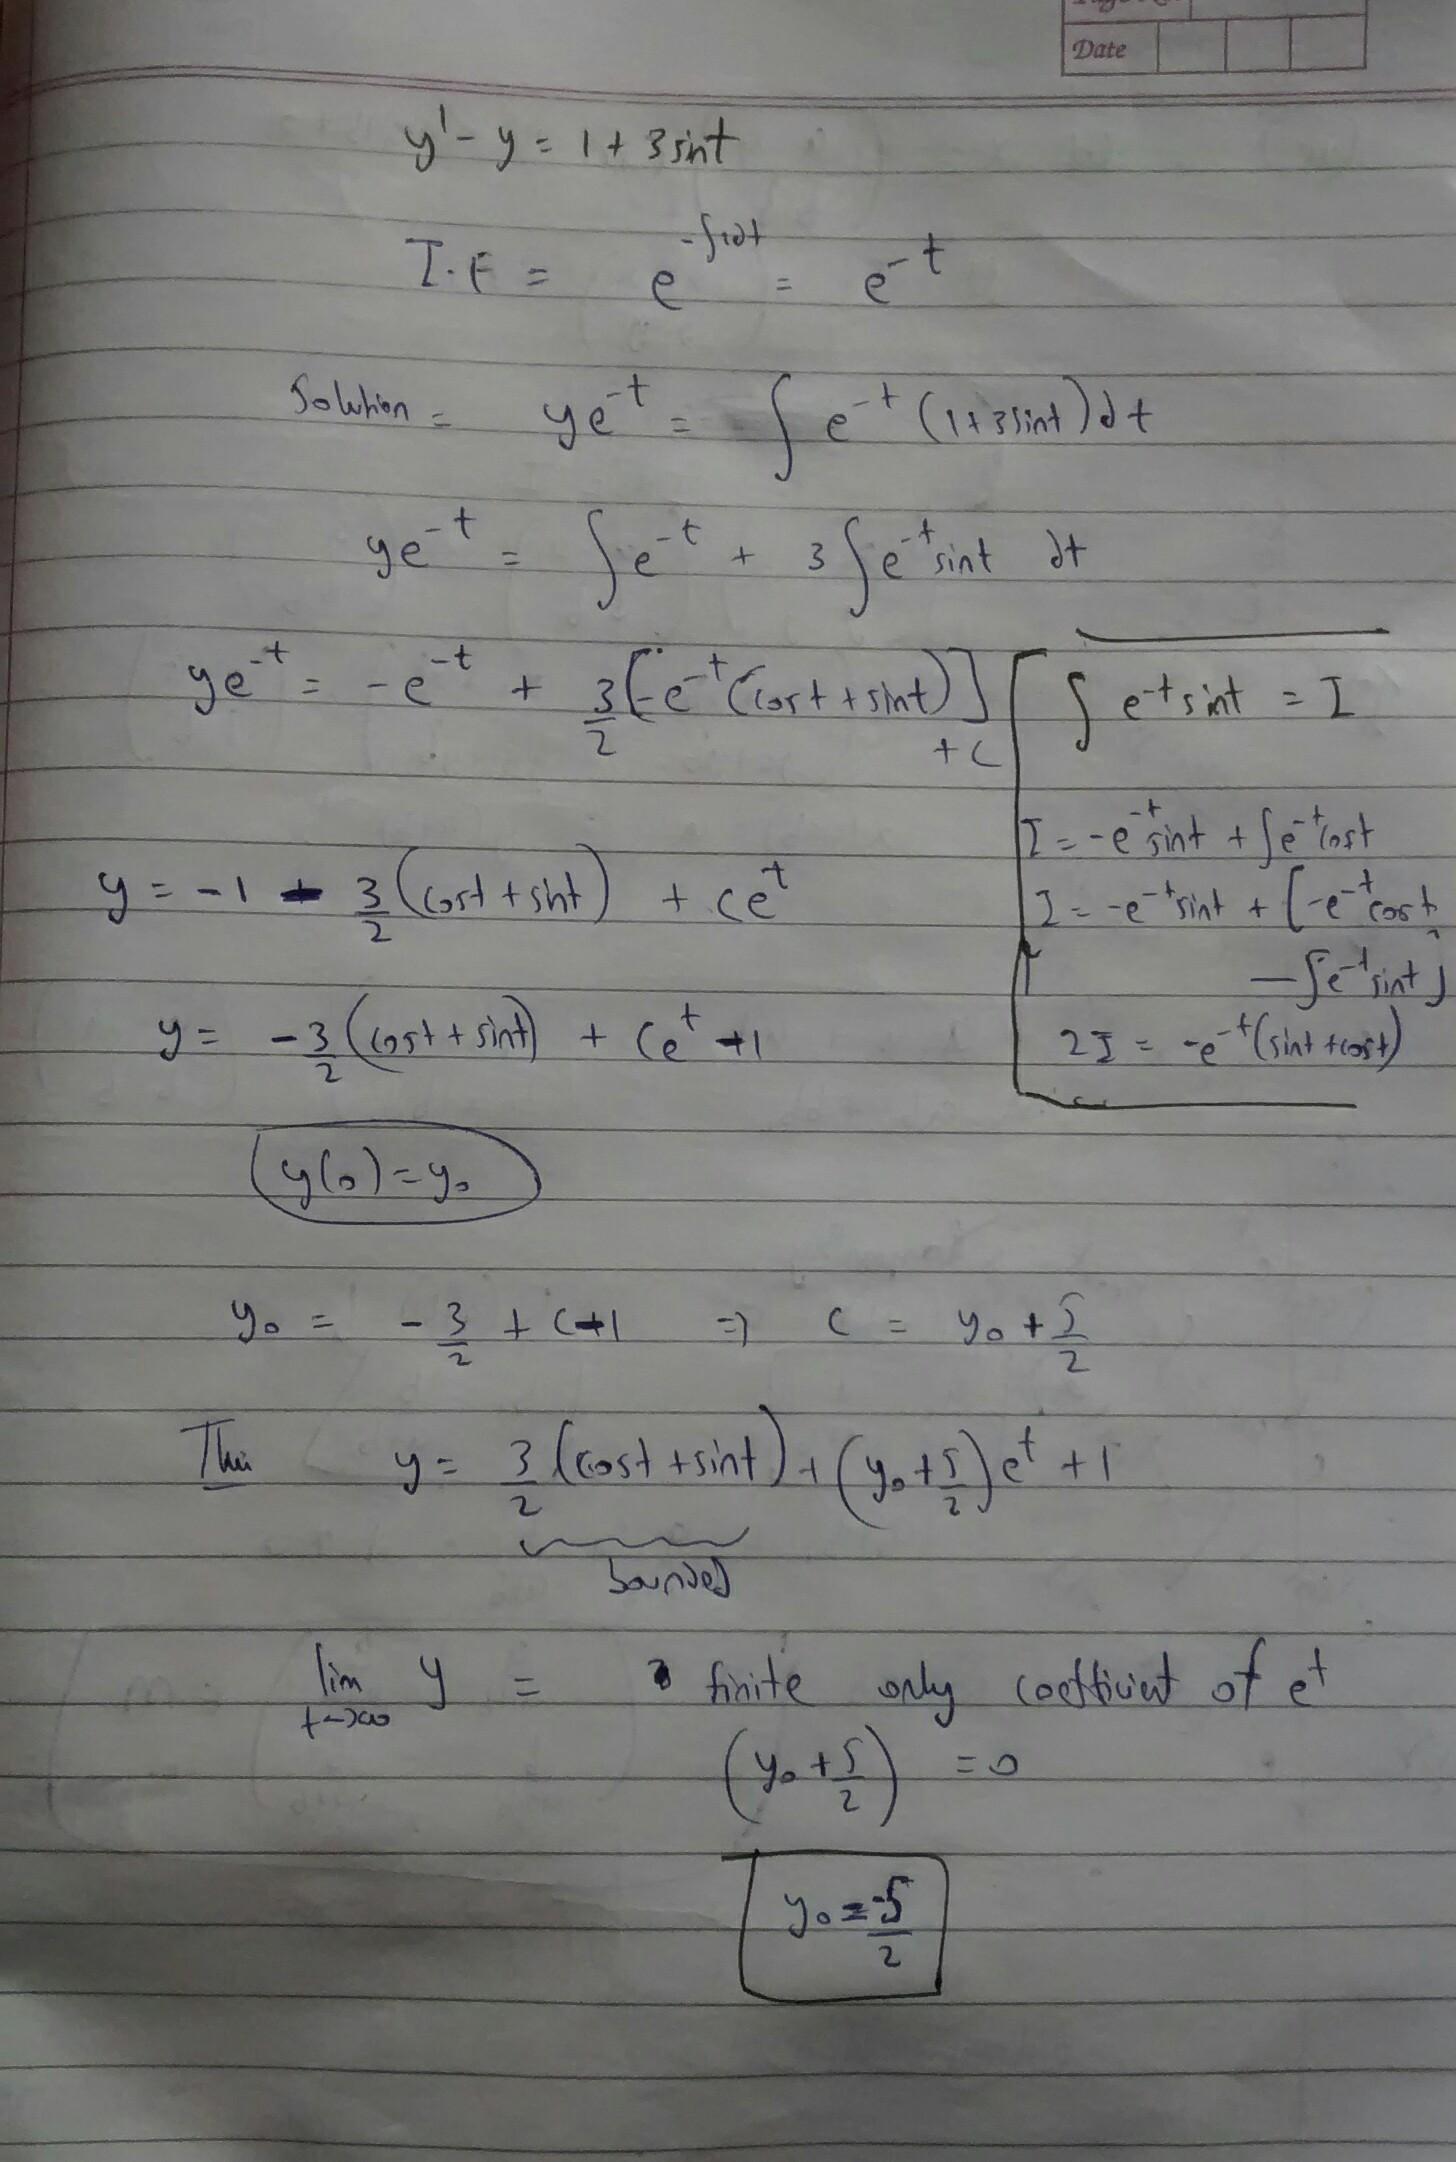 Date
y' - y = 1 + 3 sint
I.F = e^{-∫1dt} = e^{-t}
Solution = ye^{-t} = ∫ e^{-t} (1+3sint) dt
ye^{-t} = ∫e^{-t} + 3 ∫e^{-t} sint dt
ye^{-t} = -e^{-t} + 3/2 [-e^{-t} (cost + sint)] + c
∫ e^{-t} sint = I
I = -e^{-t} sint + ∫e^{-t} cost
I = -e^{-t} sint + [-e^{-t} cost
- ∫e^{-t} sint]
2I = -e^{-t} (sint + cost)
y = -1 - 3/2 (cost + sint) + ce^{t}
y = -3/2 (cost + sint) + Ce^{t} -1
y(0) = y₀
y₀ = -3/2 + C-1 ⇒ C = y₀ + 5/2
This y = 3/2 (cost + sint) + (y₀ + 5/2) e^{t} + 1
bounded
lim t→∞ y = finite only coefficient of e^{t}
(y₀ + 5/2) = 0
y₀ = -5/2